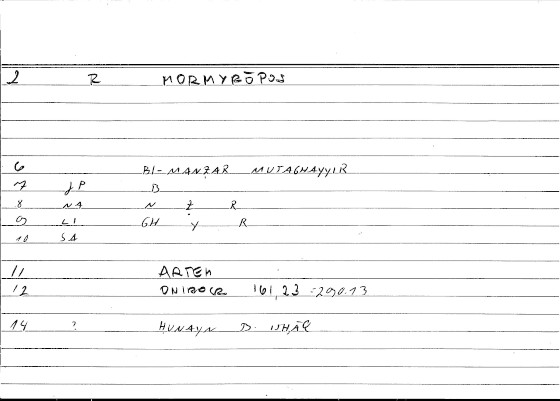 2 R MORMYRŌPOS
6 BI-MANẒAR MUTAGHAYYIR
7 JP B
8 NA N Ẓ R
9 LI GH Y R
10 SA
11 ARTEM
12 ONIROCR 161,23 = 290.13
14 ? ḤUNAYN B. ISḤĀQ